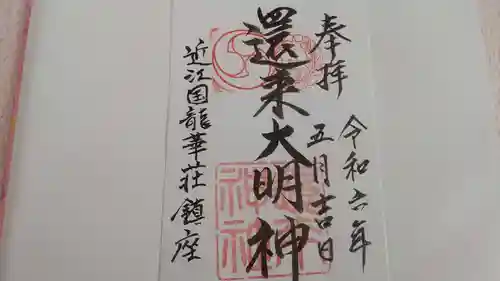 奉拝
令和六年
五月吉日
還来大明神
近江国龍華荘鎮座